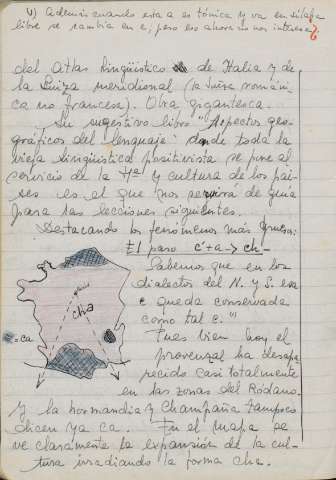 (1) Además cuando esta a es tónica y va en sílaba
libre se cambia en e, pero eso ahora no nos interesa
del Atlas lingüístico de Italia y de
la Suiza meridional (la Suiza románi-
ca no francesa). Obra gigantesca.
Su sugestivo libro "Aspectos geo-
gráficos del lenguaje" donde toda la
vieja lingüística positivista se pone al
servicio de la Hª y cultura de los paí-
ses es el que nos servirá de guía
para las lecciones siguientes.
Destacando los fenómenos más gruesos:
El paso c+a -> ch-
Sabemos que en los
dialectos del N. y S. esa
c queda conservada
como tal c. (1)
Pues bien hoy el
provenzal ha desapa
recido casi totalmente
en las zonas del Ródano
y la Normandía y Champaña tampoco
dicen ya ca. En el mapa se
ve claramente la expansión de la cul-
tura irradiando la forma cha.
cha
= ca